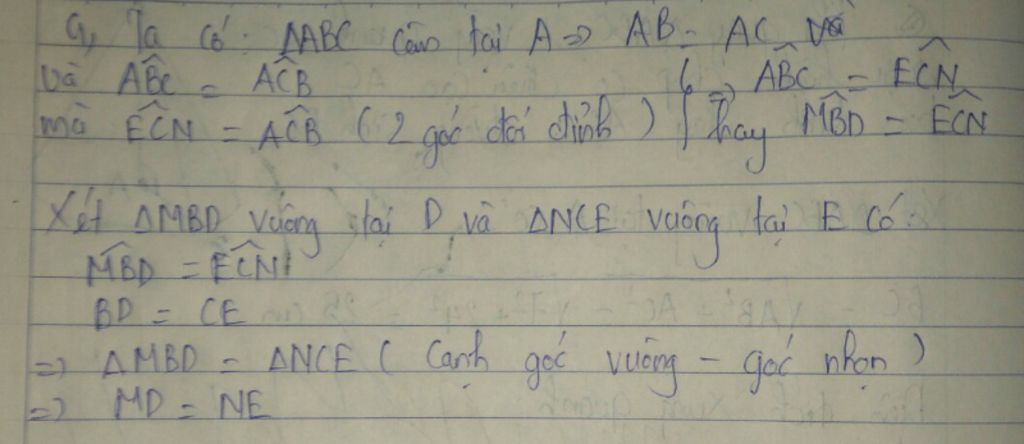 a, Ta có: ΔABC cân tại A => AB = AC và
và ABĈ = AĈB } => ABĈ = EĈN
mà EĈN = AĈB (2 góc đối đỉnh) } hay MB̂D = EĈN
Xét ΔMBD vuông tại D và ΔNCE vuông tại E có:
MB̂D = EĈN
BD = CE
=> ΔMBD = ΔNCE (Cạnh góc vuông - góc nhọn)
=> MD = NE